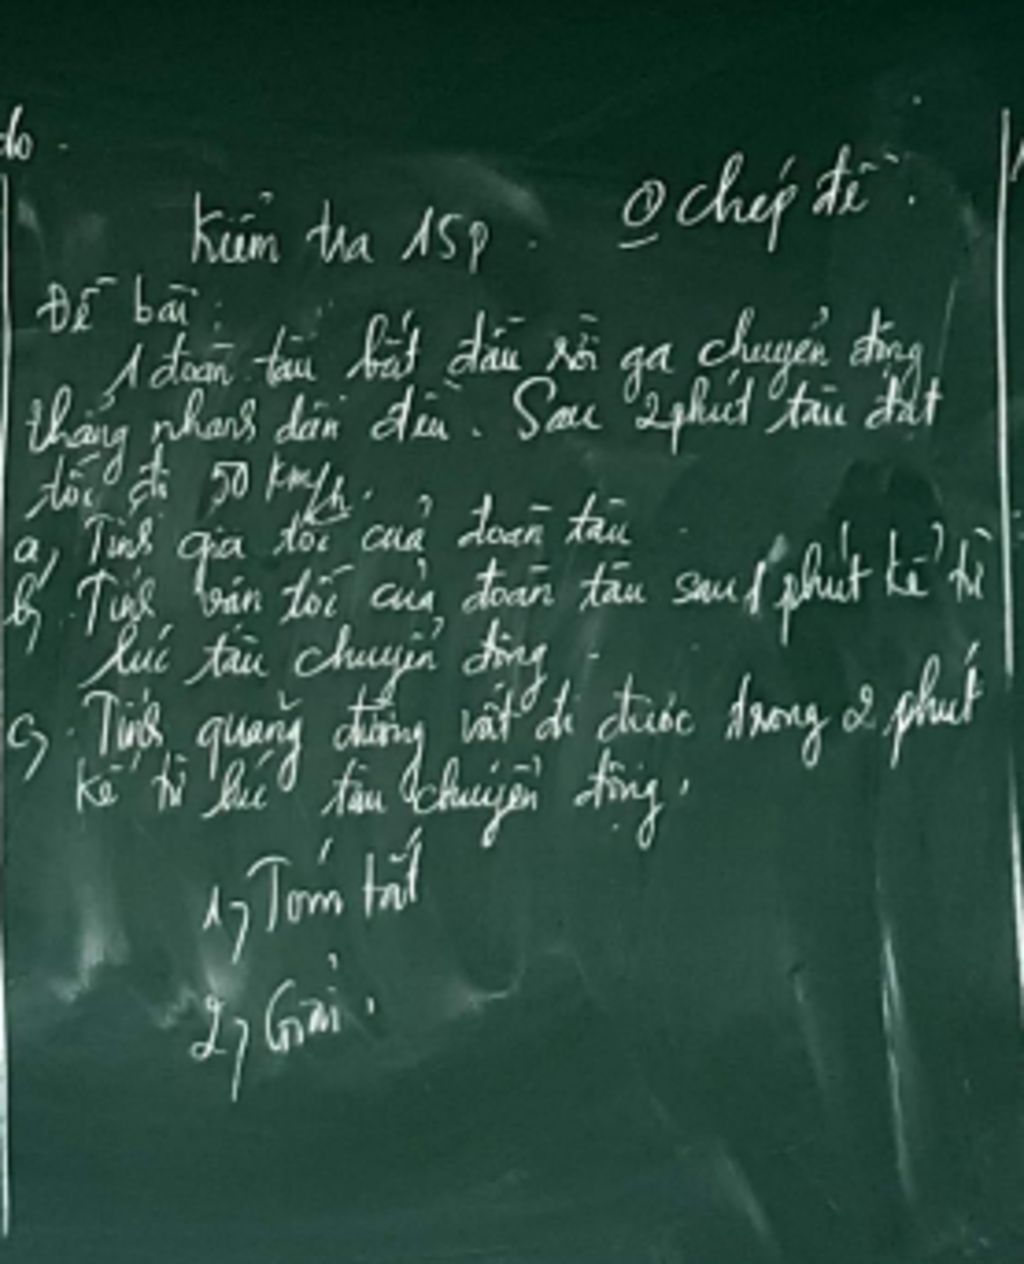 do.
Kiểm tra 15p. ⓪ chép đề.
Đề bài:
1 đoàn tàu bắt đầu rời ga chuyển động
thẳng nhanh dần đều. Sau 2 phút tàu đạt
tốc độ 50 km/h.
a, Tính gia tốc của đoàn tàu
b, Tính vận tốc của đoàn tàu sau 1 phút kể từ
lúc tàu chuyển động.
c, Tính quãng đường vật đi được trong 2 phút
kể từ lúc tàu chuyển động.
1, Tóm tắt
2, Giải.